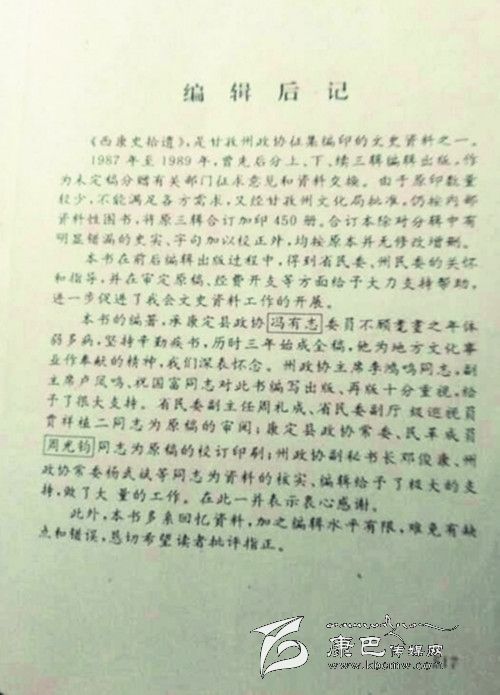 编辑后记
《西康史拾遗》，是甘孜州政协征集编印的文史资料之一。
1987年至1989年，曾先后分上、下、续三辑编辑出版，作
为未定稿分赠有关部门征求意见和资料交换。由于原印数量
较少，不能满足各方需求，又经甘孜州文化局批准，仍按内部
资料性图书，将原三辑合订加印450册。合订本除对分辑中有
明显错漏的史实、字句加以校正外，均按原本并无修改增删。
本书在前后编辑出版过程中，得到省民委、州民委的关怀
和指导，并在审定原稿、经费开支等方面给予大力支持帮助，
进一步促进了我会文史资料工作的开展。
本书的编著，承康定县政协冯有志委员不顾耄耋之年体
弱多病，坚持辛勤疾书，历时三年始成全稿，他为地方文化事
业作奉献的精神，我们深表怀念。州政协主席李鸿鸣同志，副
主席卢凤鸣、祝国富同志对此书编写出版、再版十分重视，给
予了很大支持。省民委副主任周礼成、省民委副厅级巡视员
贾祥植二同志为原稿的审阅；康定县政协常委、民革成员
周光钧同志为原稿的校订印刷；州政协副秘书长邓俊康、州
政协常委杨武斌等同志为资料的核实、编辑给予了极大的支
持，做了大量的工作。在此一并表示衷心感谢。
此外，本书多系回忆资料，加之编辑水平有限，难免有缺
点和错误，恳切希望读者批评指正。
康巴传媒网
www.kbcmw.com
17